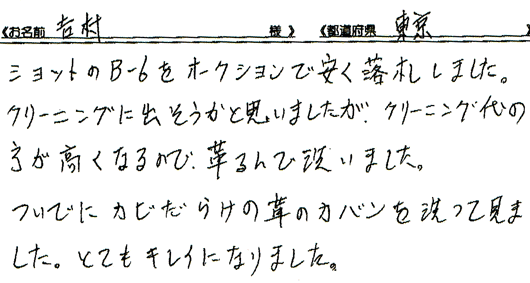 《お名前 吉村 様》 《都道府県 東京 》
ショットのB-6をオークションで安く落札しました。
クリーニングに出そうかと思いましたが、クリーニング代の
方が高くなるので、革るんで洗いました。
ついでにカビだらけの革のカバンを洗って見ま
した。とてもキレイになりました。